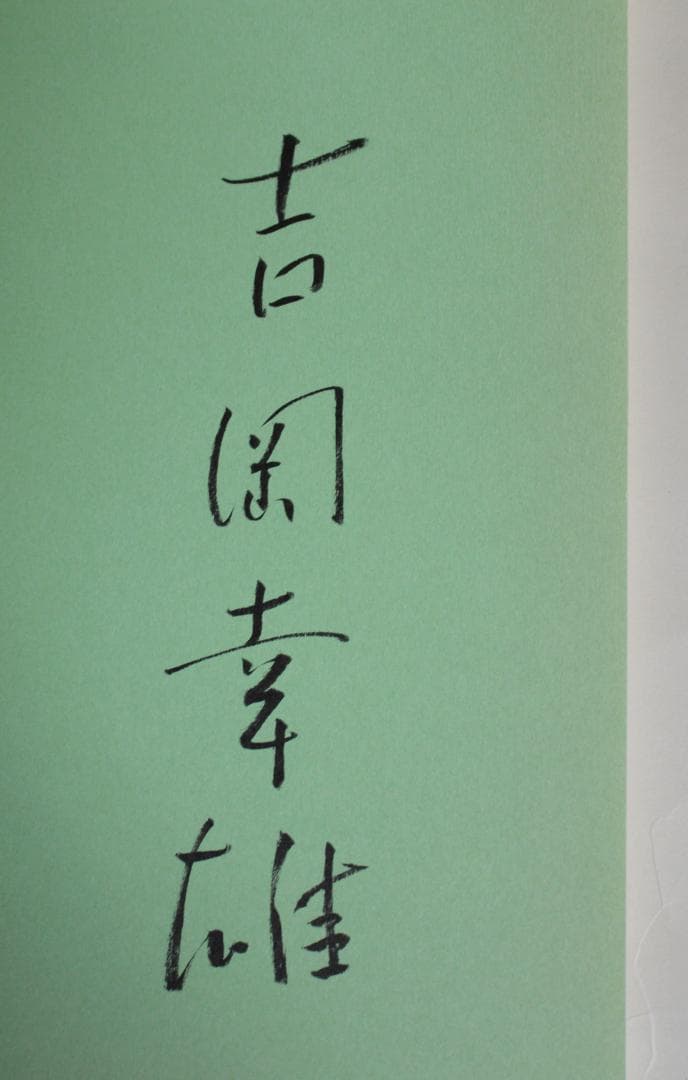 吉岡幸雄